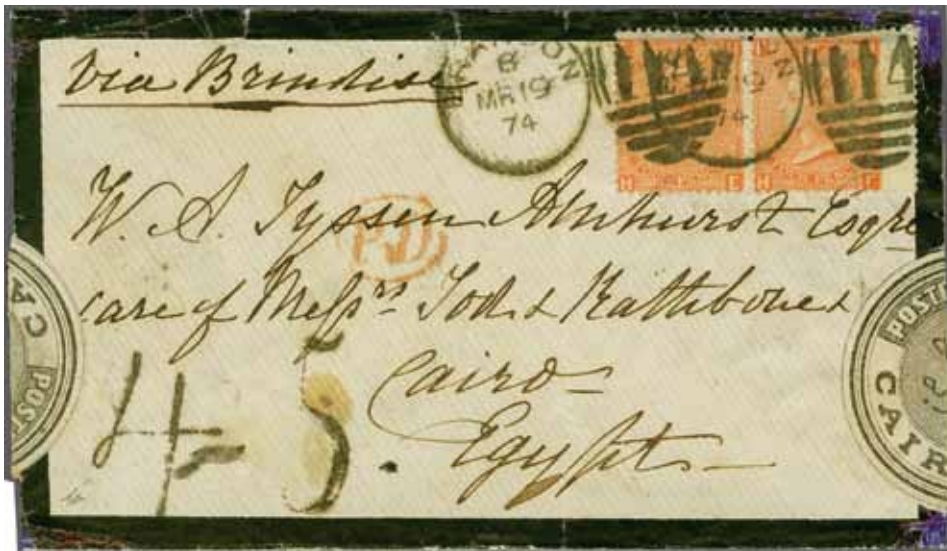 via Brindisi
BRANDON
B
MR 19
74
H E
H F
W. A. Tyssen Amhurst Esqre
P.D
care of Messrs Tod & Rathbone &
Cairo
Egypt
4 5.
POST
CA
POSTE
CAIR